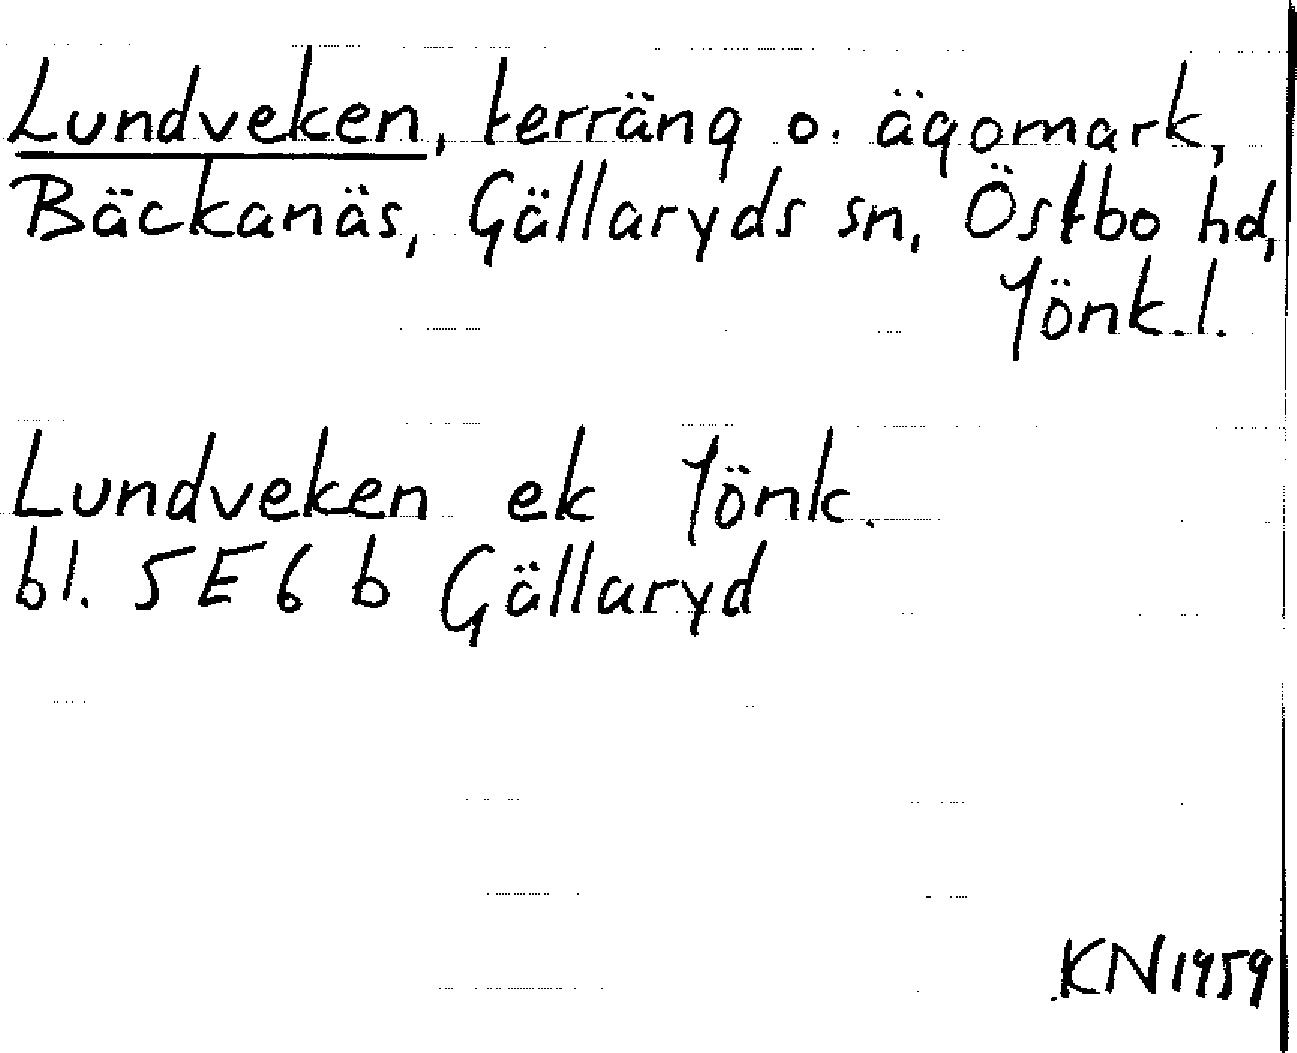 Lundveken, terräng o. ägomark,
Bäckanäs, Gällaryds sn, Östbo hd,
Jönk.l.
Lundveken ek Jönk.
bl. 5E6 b Gällaryd
KN1959